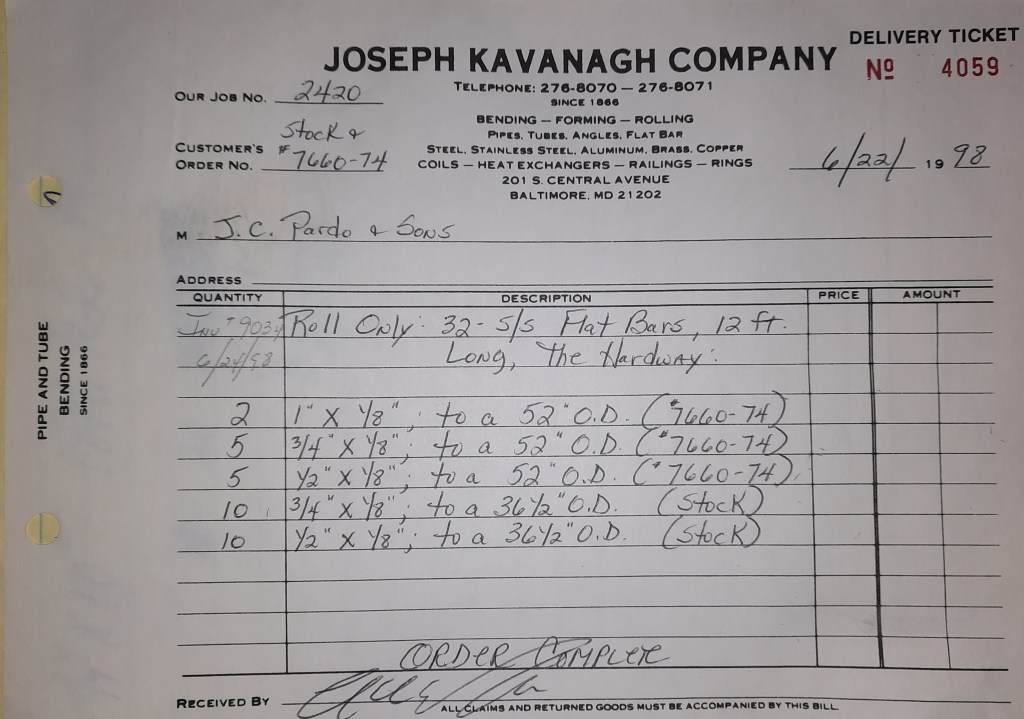 DELIVERY TICKET
JOSEPH KAVANAGH COMPANY
Nº 4059
OUR JOB No. 2420
TELEPHONE: 276-8070 — 276-8071
SINCE 1866
BENDING — FORMING — ROLLING
PIPES, TUBES, ANGLES, FLAT BAR
STEEL, STAINLESS STEEL, ALUMINUM, BRASS, COPPER
COILS — HEAT EXCHANGERS — RAILINGS — RINGS
201 S. CENTRAL AVENUE
BALTIMORE, MD 21202
Stock &
CUSTOMER'S
ORDER NO. #7660-74
6/22/ 19 98
M J.C. Pardo & Sons
ADDRESS
QUANTITY DESCRIPTION PRICE AMOUNT
Inv # 9034 Roll Only: 32- S/S Flat Bars, 12 ft.
6/24/98 Long, The Hardway:
2 1" X 1/8"; to a 52" O.D. (#7660-74)
5 3/4" X 1/8"; to a 52" O.D. (#7660-74)
5 1/2" X 1/8"; to a 52" O.D. (#7660-74)
10 3/4" X 1/8"; to a 36 1/2" O.D. (Stock)
10 1/2" X 1/8"; to a 36 1/2" O.D. (Stock)
ORDER COMPLETE
RECEIVED BY
ALL CLAIMS AND RETURNED GOODS MUST BE ACCOMPANIED BY THIS BILL
PIPE AND TUBE
BENDING
SINCE 1866